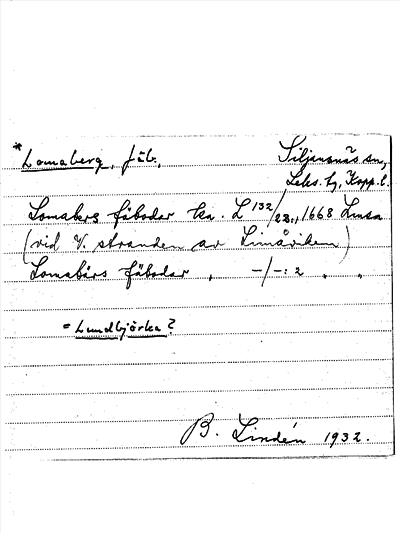 * Lomaberg, fäb., Siljansnäs sn,
Leks. tg, Kopp. l.
Lomaberg fäbodar ka. L 132/22:1, 1668 Limsa
(vid V. stranden av Limåviken)
Lomabärs fäbodar, —/—: 2 " "
= Lundbjörka?
B. Lindén 1932.